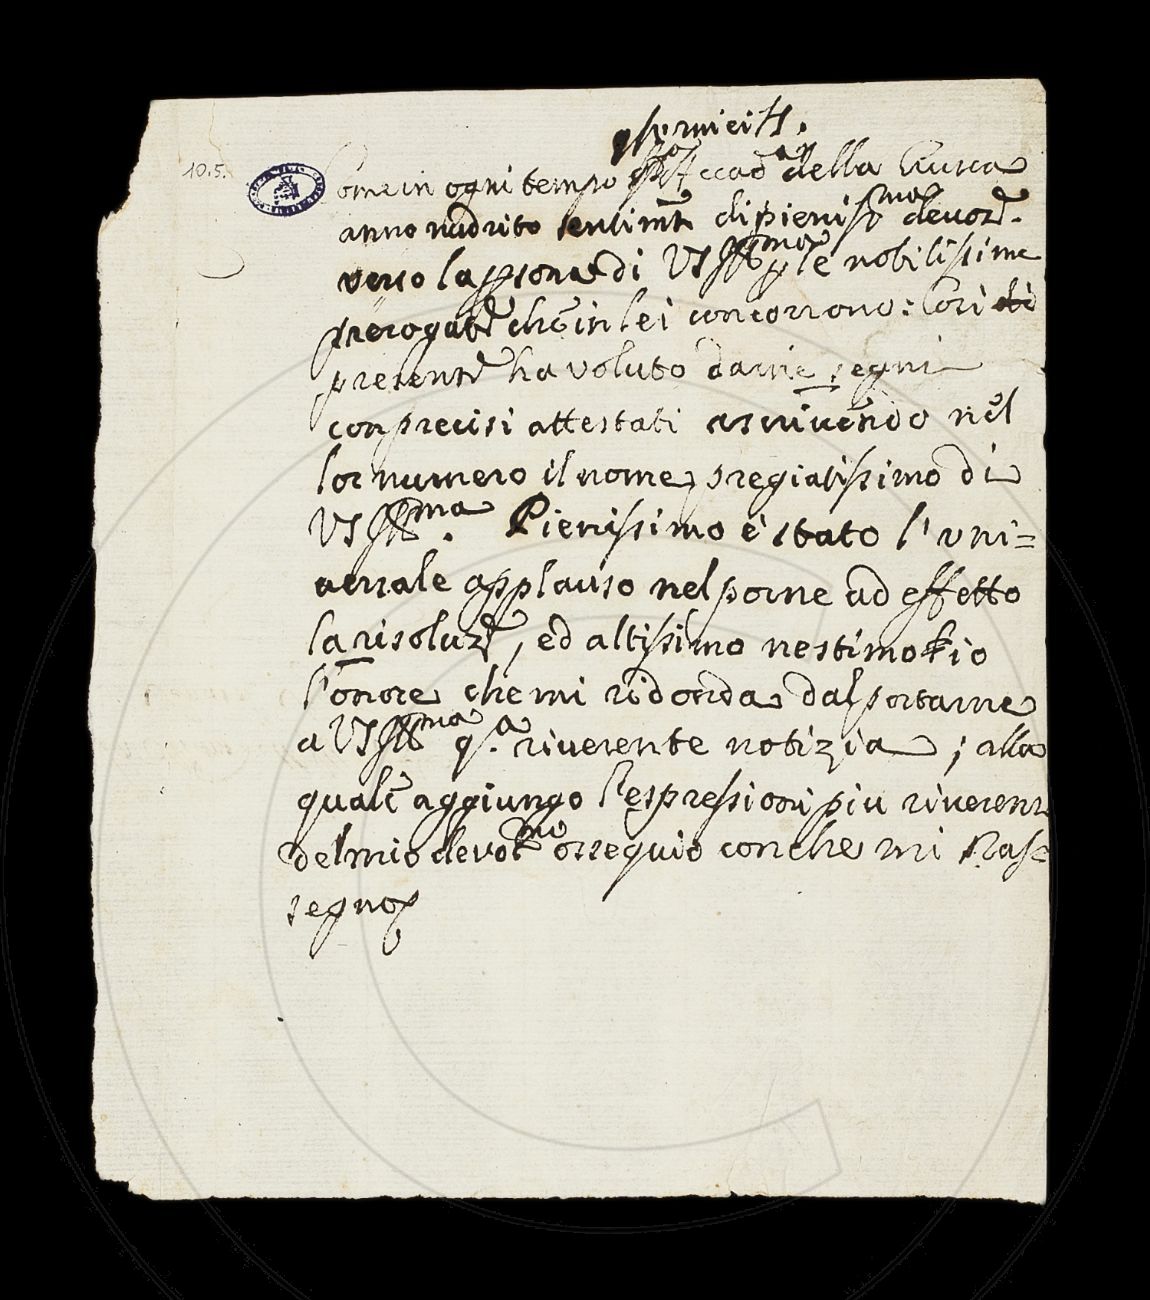 10.5.
Come in ogni tempo Accad della Crusca
anno nudrito sentimti di pienissma devoz.
verso la psona di VS Illma p le nobilissime
prerogatē che in lei concorrono: Cosi di
presentē ha voluto darne segni
con precisi attestati ascrivendo nel
lor numero il nome pregiatissimo di
VS Illma. Pienissimo è stato l'uni=
versale applauso nel porne ad effetto
la risoluz, ed altissimo ne stimo io
l'onore che mi ridonda dal portarne
a VS Illma q.a riverente notizia; alla
quale aggiungo l'espressioni piu riverenti
del mio devotmo ossequio con che mi Ras=
segno